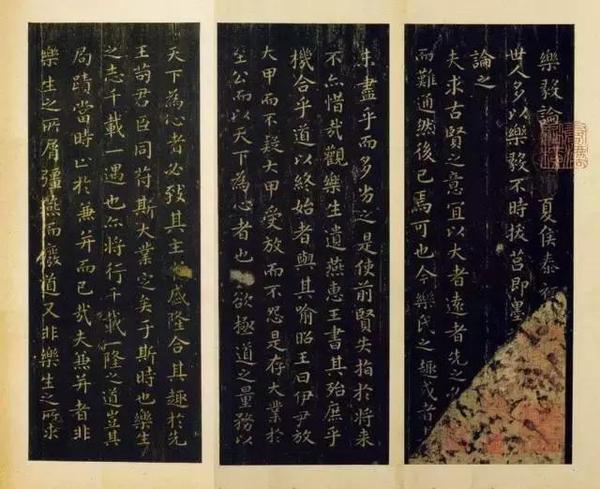 樂毅論 夏侯泰
世人多以樂毅不時拔莒即墨
論之
夫求古賢之意宜以大者遠者先之
而難通然後已焉可也今樂氏之趣或者
未盡乎而多劣之是使前賢失指於將来
不亦惜哉觀樂生遺燕惠王書其殆庶乎
機合乎道以終始者與其喻昭王曰伊尹放
大甲而不疑大甲受放而不怨是存大業於
至公而以天下為心者也 欲極道之量務以
天下為心者必致其主 盛隆合其趣於先
王苟君臣同符斯大業定矣于斯時也樂生
之志千載一遇也亦將行千載一隆之道豈其
局蹟當時止於兼并而已哉夫兼并者非
樂生之所屑彊燕而廢道又非樂生之所求